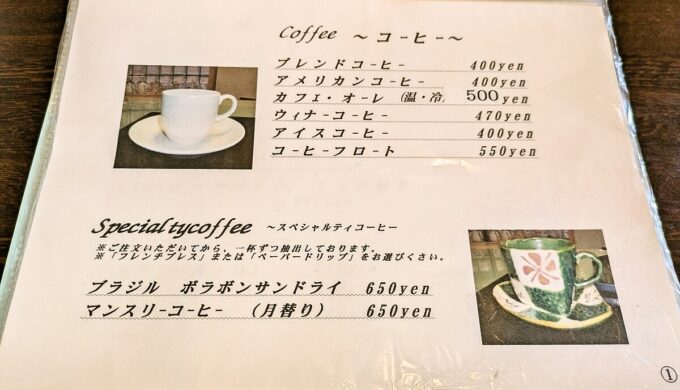 Coffee ～コーヒー～
ブレンドコーヒー 400yen
アメリカンコーヒー 400yen
カフェ・オーレ (温・冷) 500yen
ウィナーコーヒー 470yen
アイスコーヒー 400yen
コーヒーフロート 550yen
Specialtycoffee ～スペシャルティコーヒー
※ご注文いただいてから、一杯ずつ抽出しております。
※「フレンチプレス」または「ペーパードリップ」をお選びくさい。
ブラジル ボラボンサンドライ 650yen
マンスリーコーヒー (月替り) 650yen
①